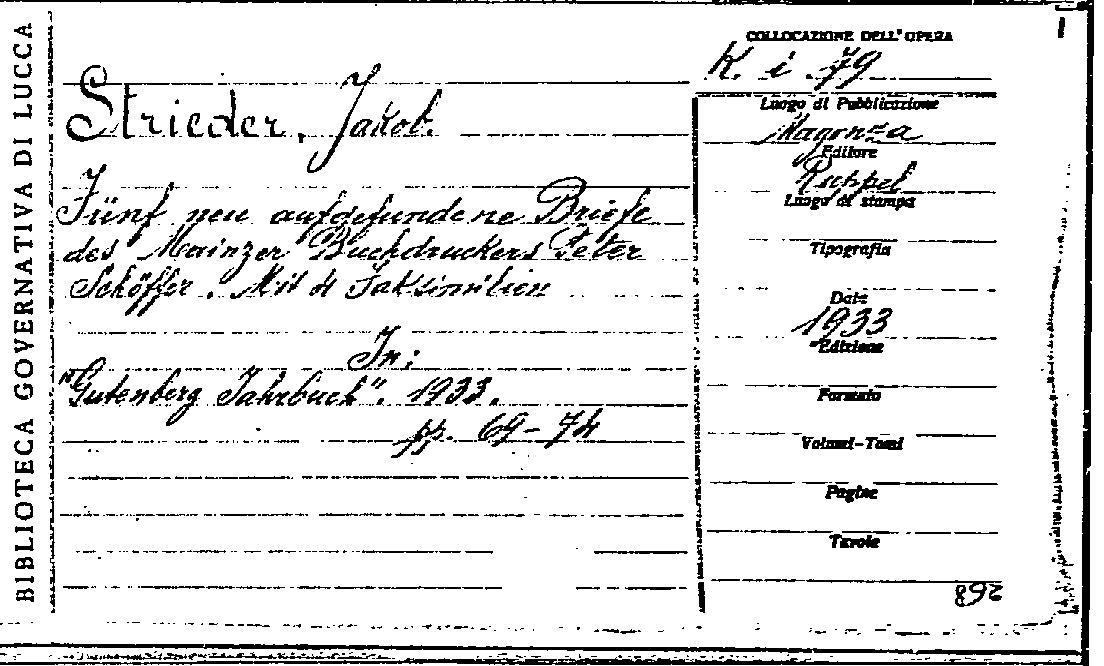 BIBLIOTECA GOVERNATIVA DI LUCCA
Strieder, Jakob.
Fünf neu aufgefundene Briefe
des Mainzer Buchdruckers Peter
Schöffer. Mit 4 Faksimilien
In:
"Gutenberg Jahrbuch". 1933.
pp. 69-74
COLLOCAZIONE DELL'OPERA
K. i. 79
Luogo di Pubblicazione
Magonza
Editore
Ruppel
Luogo di stampa
Tipografia
Date
1933
Edizione
Formato
Volumi-Tomi
Pagine
Tavole
268